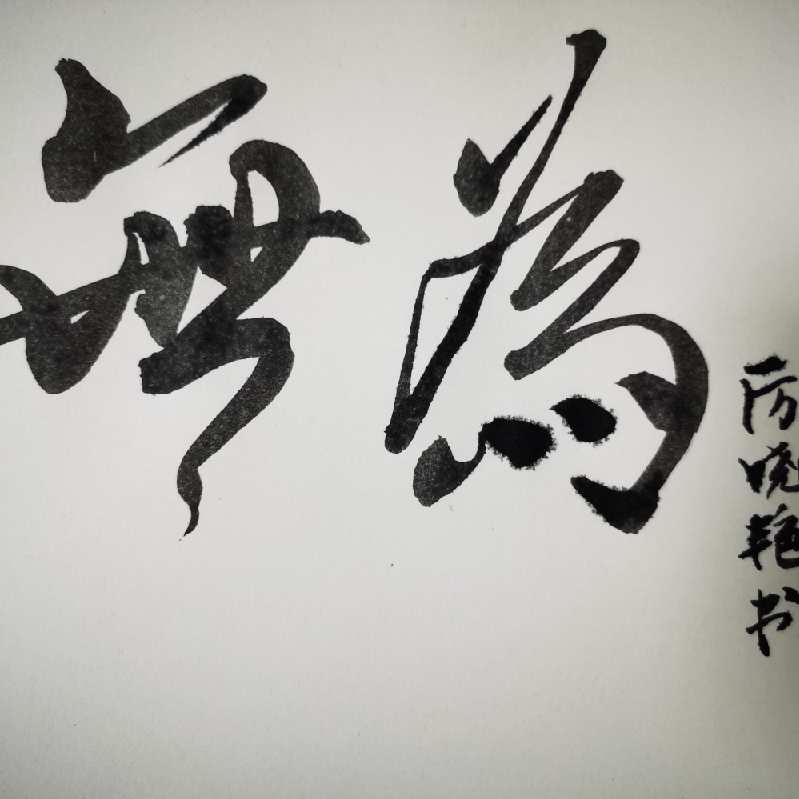 無為
厉晓艳书